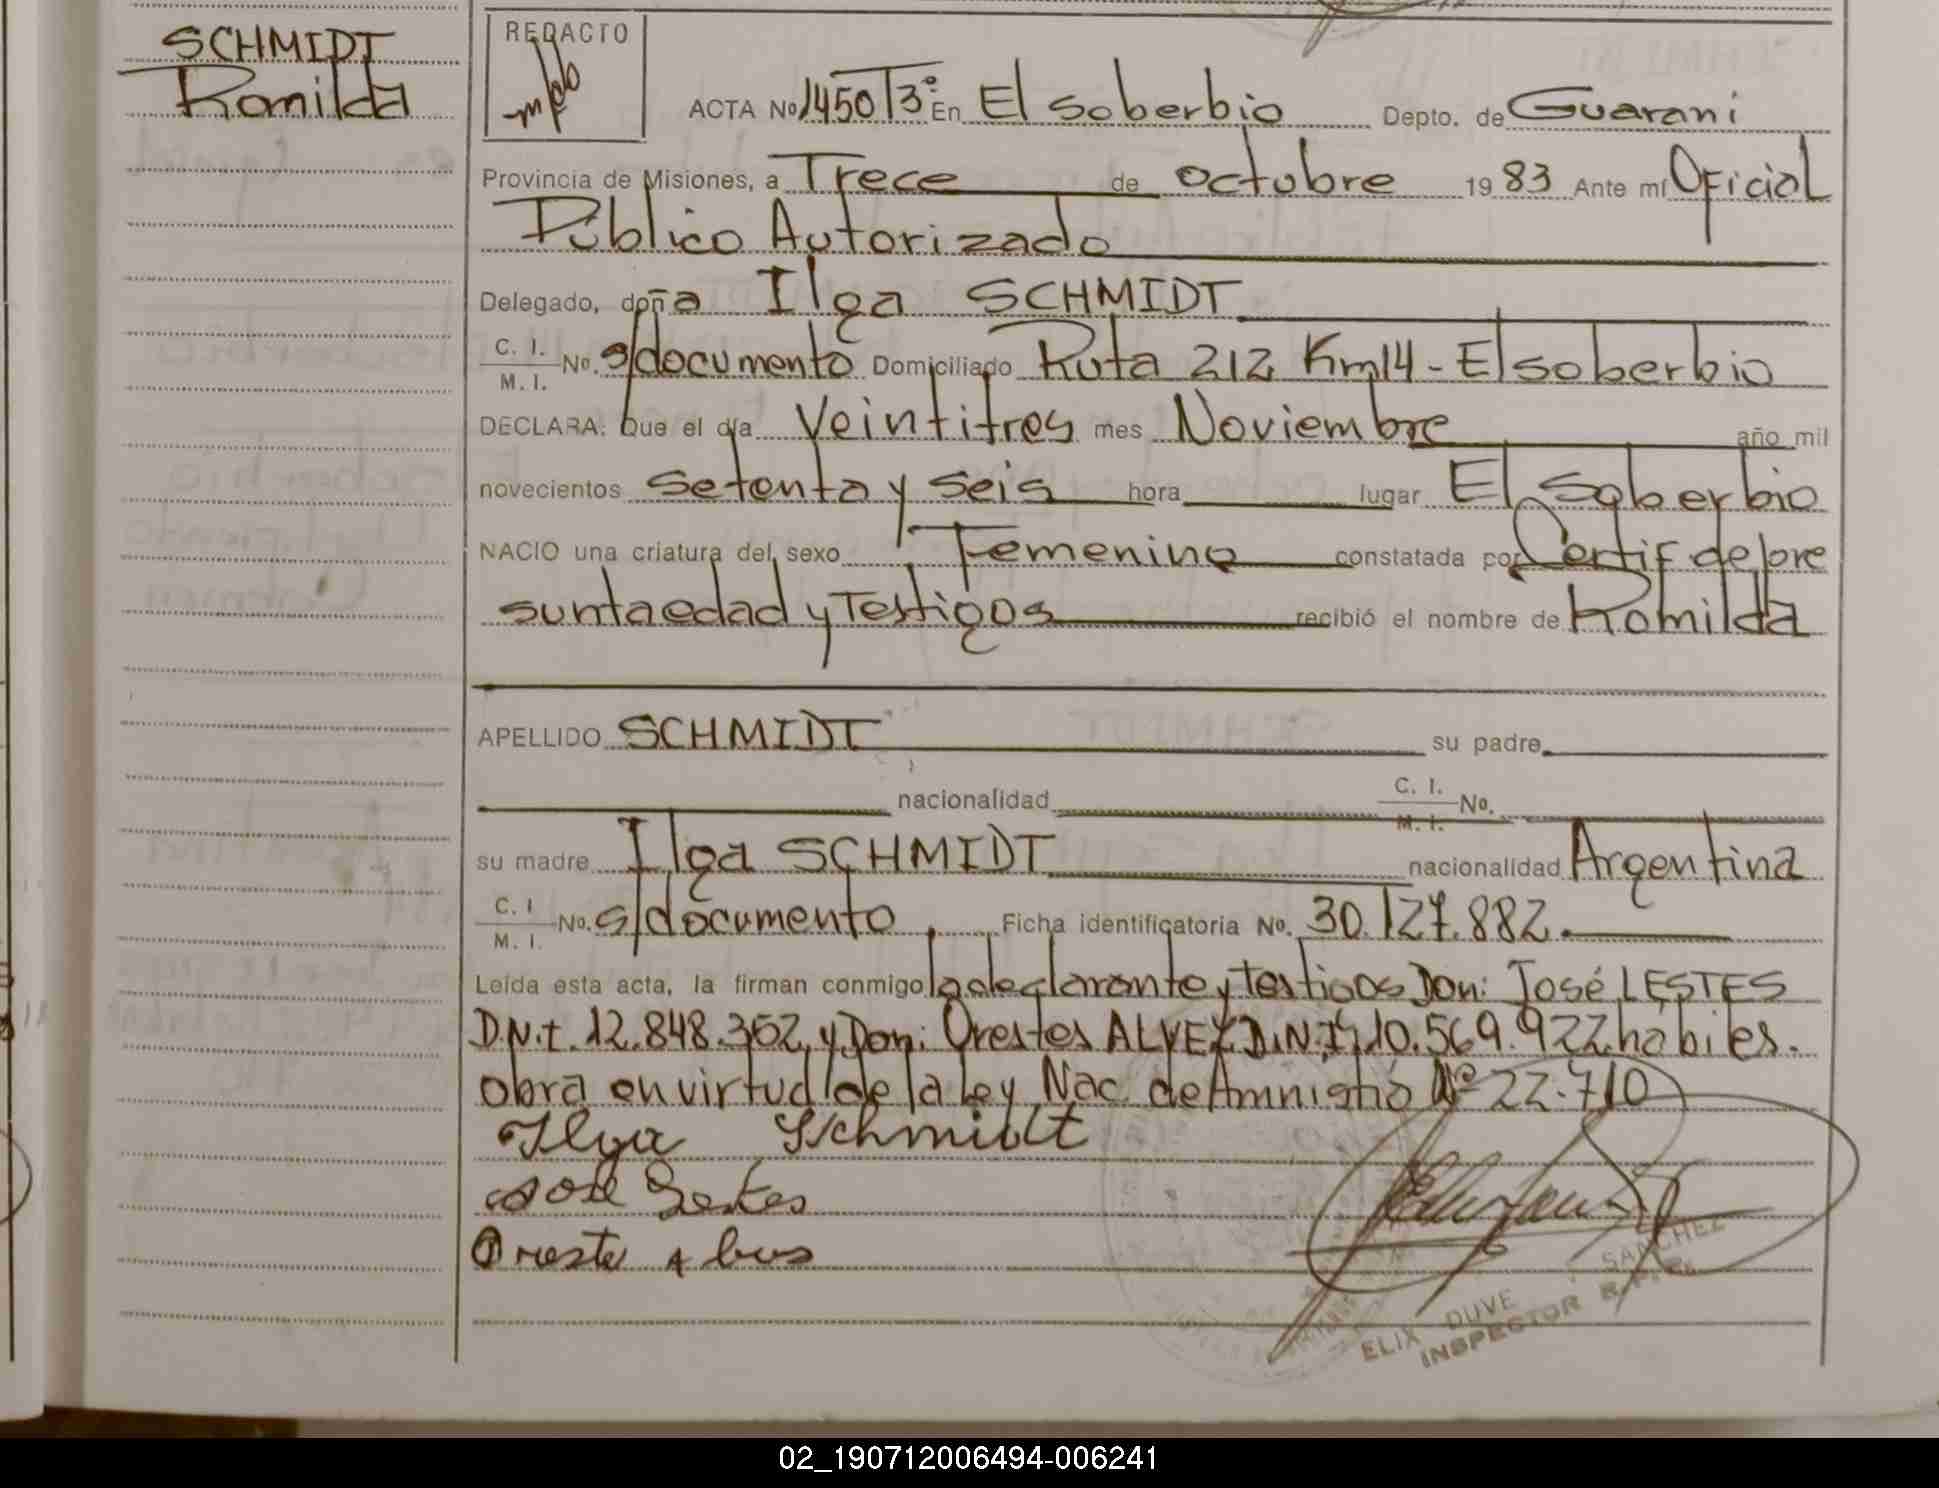 SCHMIDT
Romilda
REDACTO
ACTA No 1450 T3º En El soberbio Depto. de Guarani
Provincia de Misiones, a Trece de octubre 1983 Ante mí Oficial
Público Autorizado
Delegado, doña Ilga SCHMIDT
C. I. M. I. No. s/documento Domiciliado Ruta 212 Km14 - El soberbio
DECLARA: Que el día Veintitres mes Noviembre año mil
novecientos setenta y seis hora lugar El Soberbio
NACIO una criatura del sexo Femenino constatada por Certif de pre
sunta edad y Testigos recibió el nombre de Romilda
APELLIDO SCHMIDT su padre
nacionalidad C. I. M. I. No.
su madre Ilga SCHMIDT nacionalidad Argentina
C. I M. I. No. s/documento Ficha identificatoria No. 30.127.882.
Leída esta acta, la firman conmigo la declarante y testigos Don: José LESTES
D.N.I. 12.848.352 y Don: Orestes ALVEZ D.N.I. 10.569.922 habiles.
obra en virtud de la Ley Nac. de Amnistia Nº 22.710
Ilga Schmidt
José Lestes
Oreste
SANCHEZ
ELIX DUVE
INSPECTOR R.P.P.
02_190712006494-006241